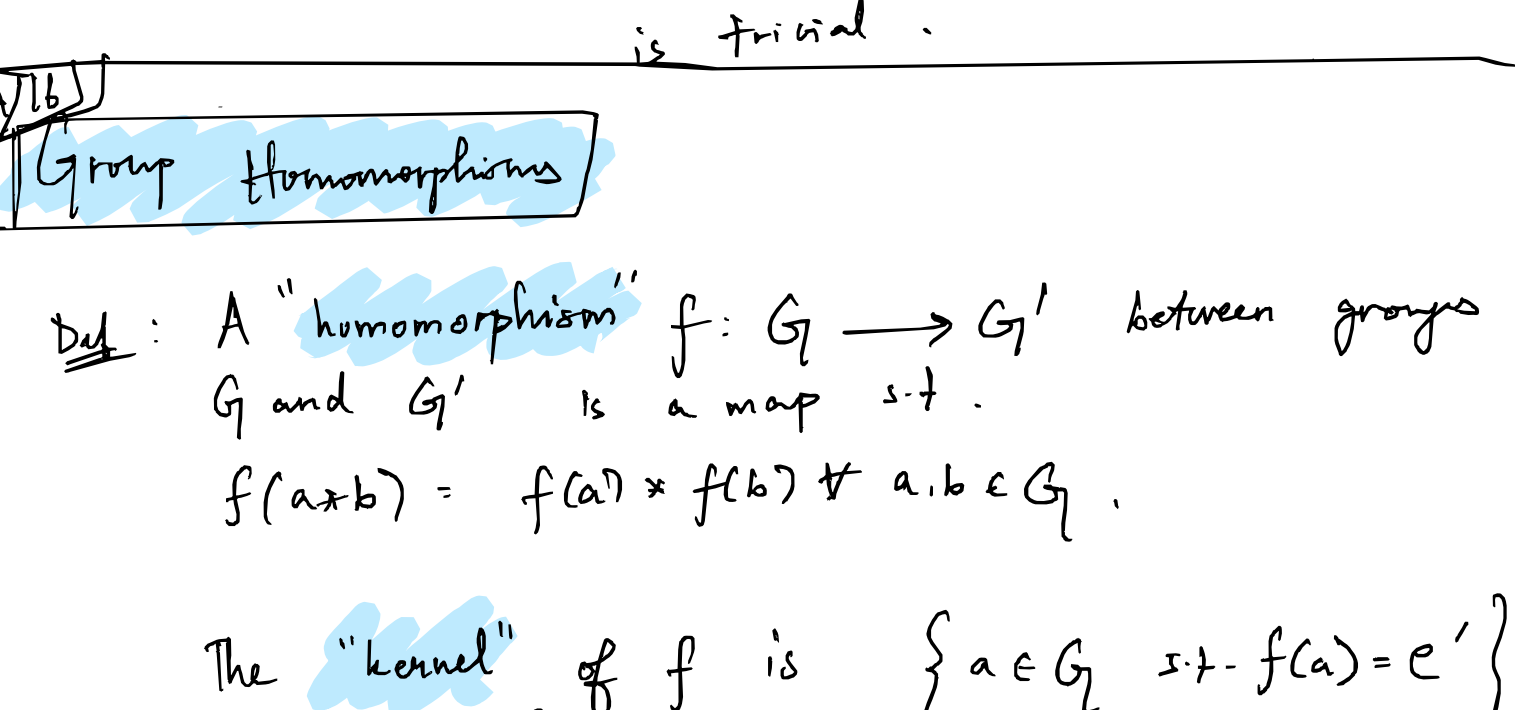 is trivial.
/16
Group Homomorphisms
Def: A "homomorphism" f: G ⟶ G' between groups
G and G' is a map s.t.
f(a*b) = f(a) * f(b) ∀ a,b ∈ G.
The "kernel" of f is { a ∈ G s.t. f(a) = e' }